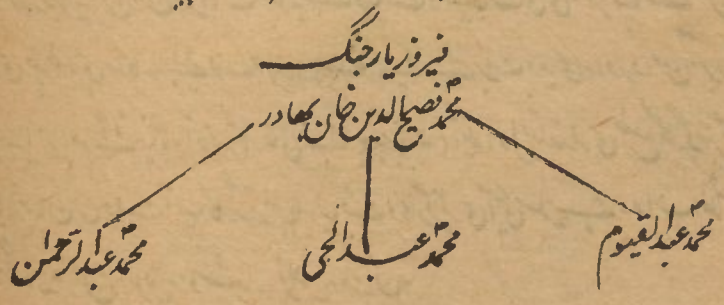 فیروز یار جنگ
محمد فصیح الدین خان بہادر
محمد عبدالقیوم محمد عبدالحی محمد عبدالرحمن